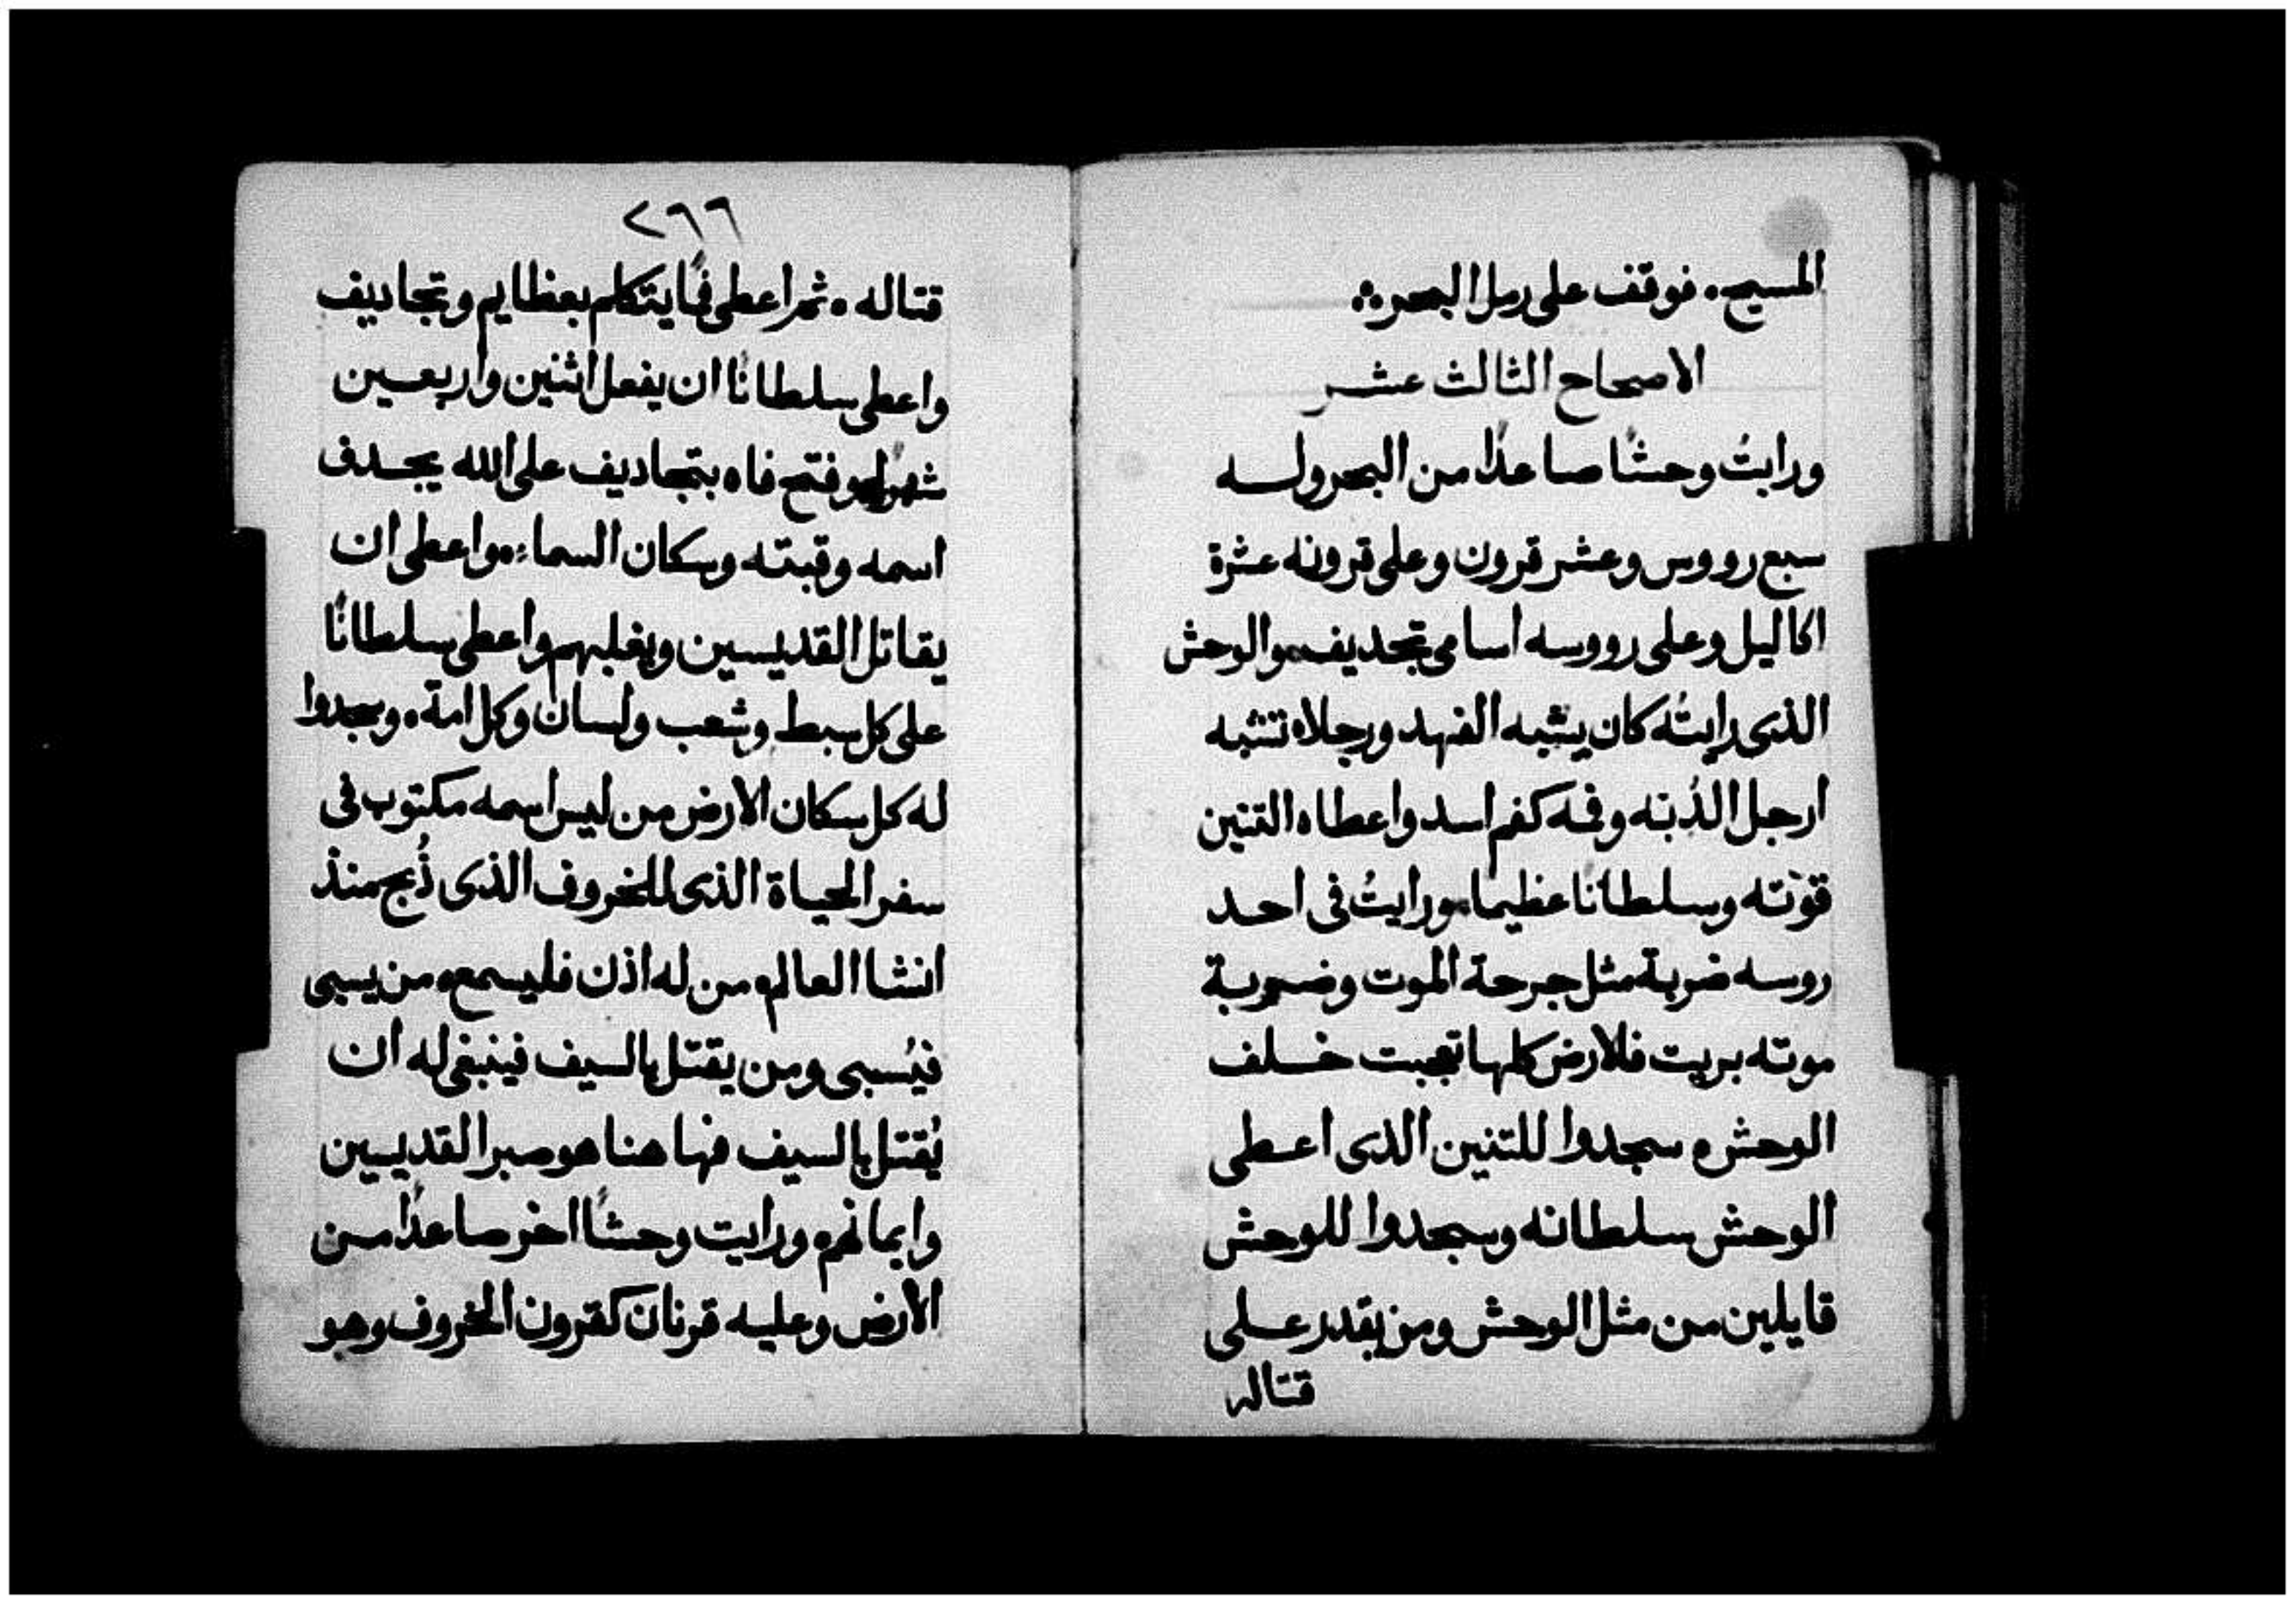 المسيح. فوقف على رمل البحر ⁘
الاصحاح الثالث عشر
ورايتُ وحشًا صاعدًا من البحر وله
سبع رووس وعشر قرون وعلى قرونه عشرة
اكاليل وعلى رووسه اسامى تجديف. والوحش
الذى رايتُه كان يشبه الفهد ورجلاه تشبه
ارجل الدُبّه وفمه كفم اسد واعطاه التنين
قوّته وسلطانًا عظيمًا. ورايتُ فى احد
روسه ضربة مثل جرحة الموت وضربة
موته بريت فلارض كلها تعجبت خلف
الوحش. سجدوا للتنين الذى اعطى
الوحش سلطانه وسجدوا للوحش
قايلين من مثل الوحش ومن يقدر على
قتاله
٢٦٦
قتاله. ثم اعطى فمًا يتكلم بعظايم وتجاديف
واعطى سلطانًا ان يفعل اثنين واربعين
شهرًا. وفتح فاه بتجاديف على الله يجدف
اسمه وقبته وسكان السماء. واعطى ان
يقاتل القديسين ويغلبهم واعطى سلطانًا
على كل سبط وشعب ولسان وكل امة. وسجدوا
له كل سكان الارض من ليس اسمه مكتوب فى
سفر الحياة الذى للخروف الذى ذُبح منذ
انشا العالم. من له اذن فليسمع. من يسبى
فيُسبى ومن يقتل بالسيف فينبغى له ان
يُقتل بالسيف فها هنا هو صبر القديسين
وايمانهم. ورايت وحشًا اخر صاعدًا من
الارض وعليه قرنان كقرون الخروف وهو